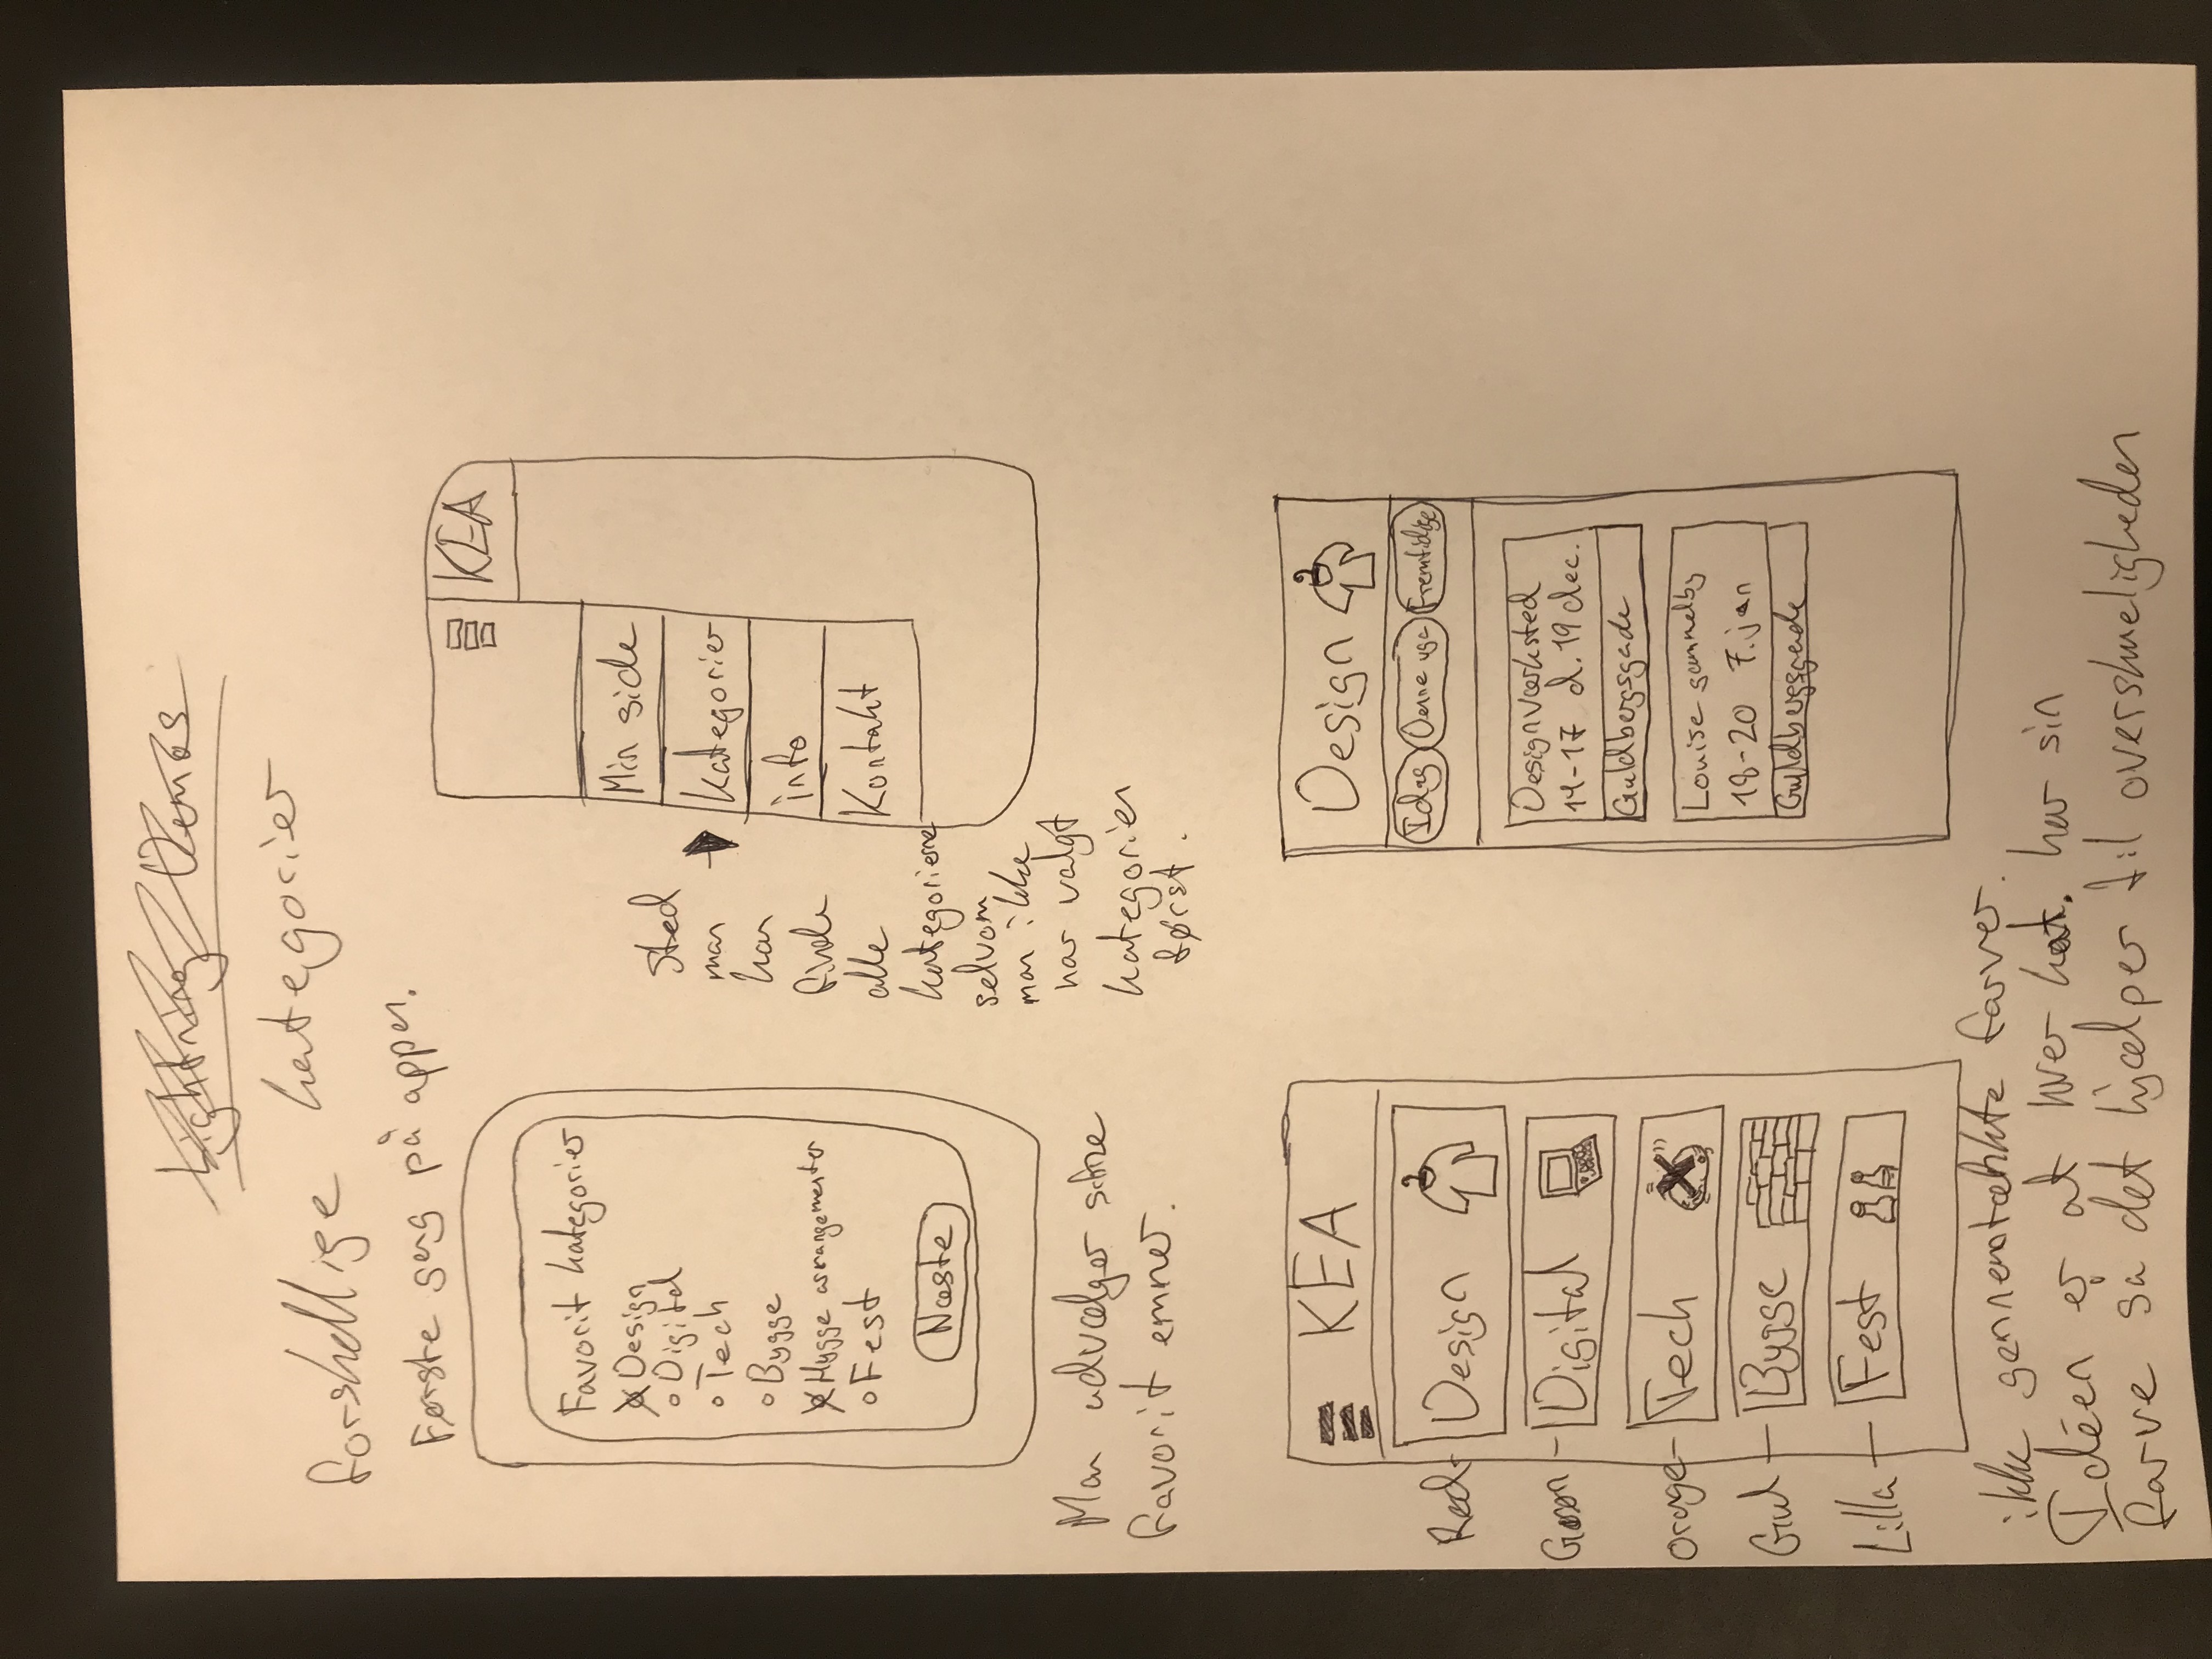 Lightning Demos
forskellige kategorier
Første gang på appen.
Favorit kategorier
Design
Digital
Tech
Bygge
Hygge arrangementer
Fest
Næste
Man udvælger sine
favorit emner.
Sted
man
kan
finde
alle
kategorierne
selvom
man ikke
har valgt
kategorien
først.
KEA
Min side
Kategorier
info
Kontakt
KEA
Rød
Design
Grøn
Digital
Orange
Tech
Gul
Bygge
Lilla
Fest
Design
Idag
Denne uge
Fremtidige
Designværksted
14-17 d. 19 dec.
Guldbergsgade
Louise gammelby
18-20 7. jan
Guldbergsgade
ikke gennemtænkte farver.
Idéen er at hver kat. har sin
farve så det hjælper til overskueligheden